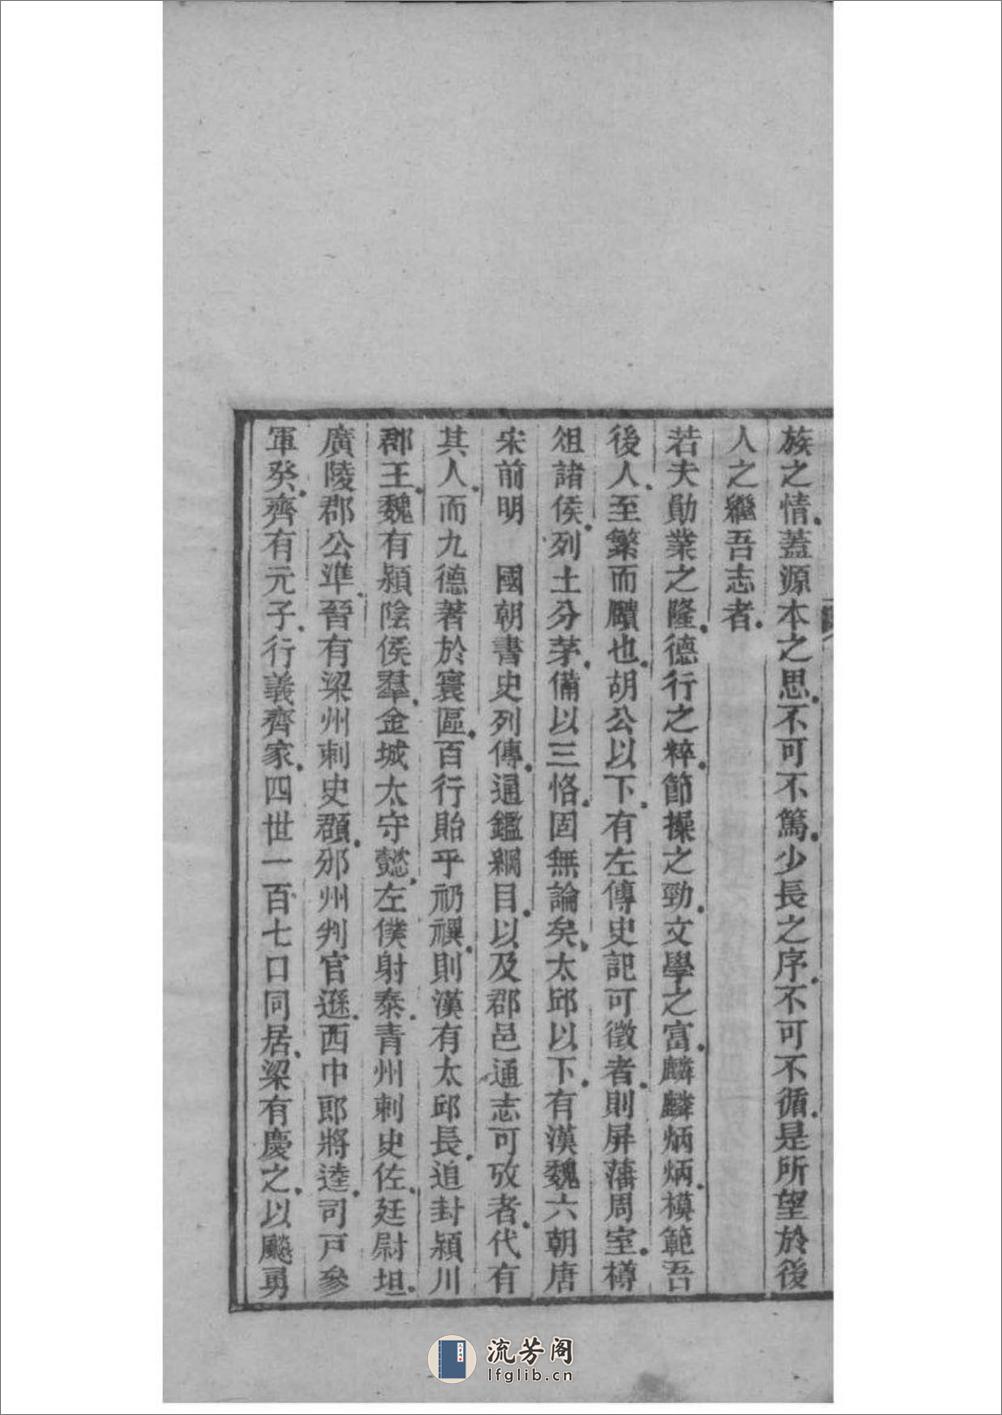 族之情。蓋源本之思。不可不篤。少長之序。不可不循。是所望於後
人之繼吾志者。
若夫勛業之隆。德行之粹。節操之勁。文學之富。麟麟炳炳。模範吾
後人。至繁而賾也。胡公以下。有左傳史記可徵者。則屏藩周室。樽
俎諸侯。列土分茅。備以三恪。固無論矣。太邱以下。有漢魏六朝唐
宋前明　國朝書史列傳。通鑑綱目。以及郡邑通志可攷者。代有
其人。而九德著於寰區。百行貽乎礽禩。則漢有太邱長。追封潁川
郡王。魏有潁陰侯羣。金城太守懿。左僕射泰。青州刺史佐。廷尉坦。
廣陵郡公準。晉有梁州刺史頵。邠州判官遜。西中郎將逵。司戸參
軍癸。齊有元子。行義齊家。四世一百七口同居。梁有慶之。以飇勇
流芳阁
lfglib.cn